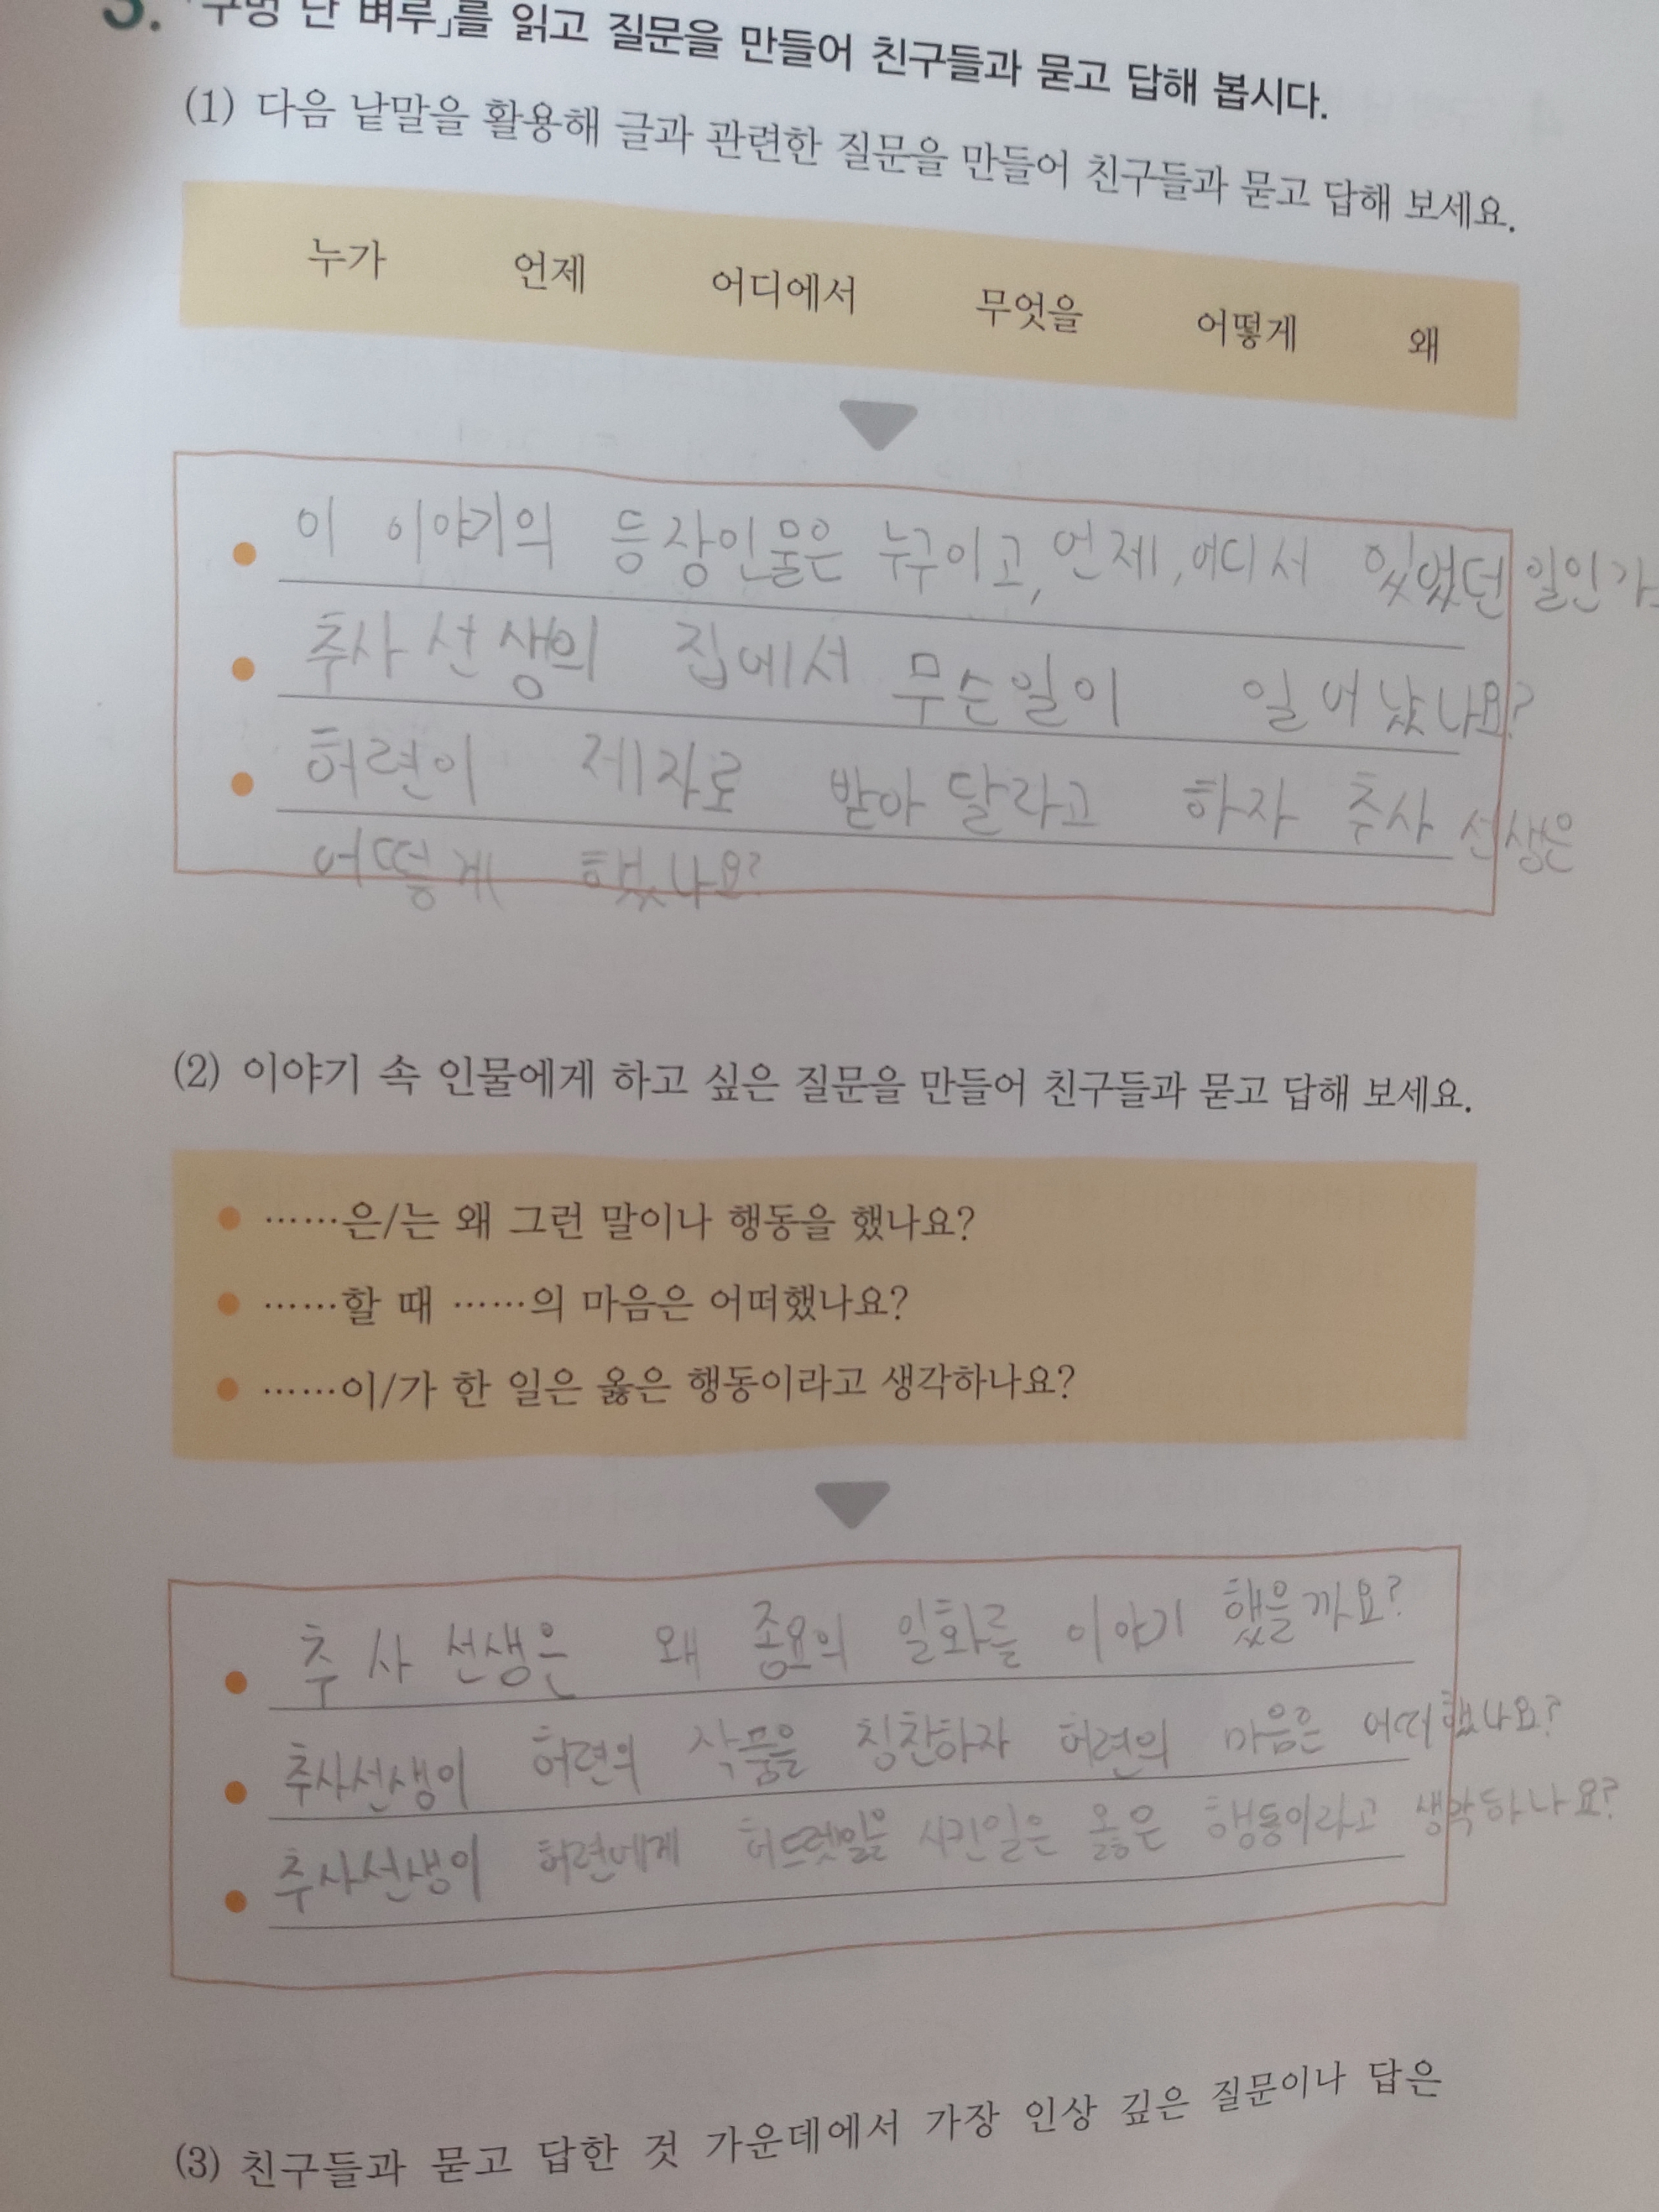 3. 「구멍 난 벼루」를 읽고 질문을 만들어 친구들과 묻고 답해 봅시다.
(1) 다음 낱말을 활용해 글과 관련한 질문을 만들어 친구들과 묻고 답해 보세요.
누가 언제 어디에서 무엇을 어떻게 왜
이 이야기의 등장인물은 누구이고, 언제, 어디서 있었던 일인가
추사 선생의 집에서 무슨일이 일어났나요?
허련이 제자로 받아 달라고 하자 추사 선생은
어떻게 했나요?
(2) 이야기 속 인물에게 하고 싶은 질문을 만들어 친구들과 묻고 답해 보세요.
● ……은/는 왜 그런 말이나 행동을 했나요?
● ……할 때 ……의 마음은 어떠했나요?
● ……이/가 한 일은 옳은 행동이라고 생각하나요?
추사 선생은 왜 종요의 일화를 이야기 했을까요?
추사선생이 허련의 작품을 칭찬하자 허련의 마음은 어떠했나요?
추사선생이 허련에게 허드렛일을 시킨일은 옳은 행동이라고 생각하나요?
(3) 친구들과 묻고 답한 것 가운데에서 가장 인상 깊은 질문이나 답은